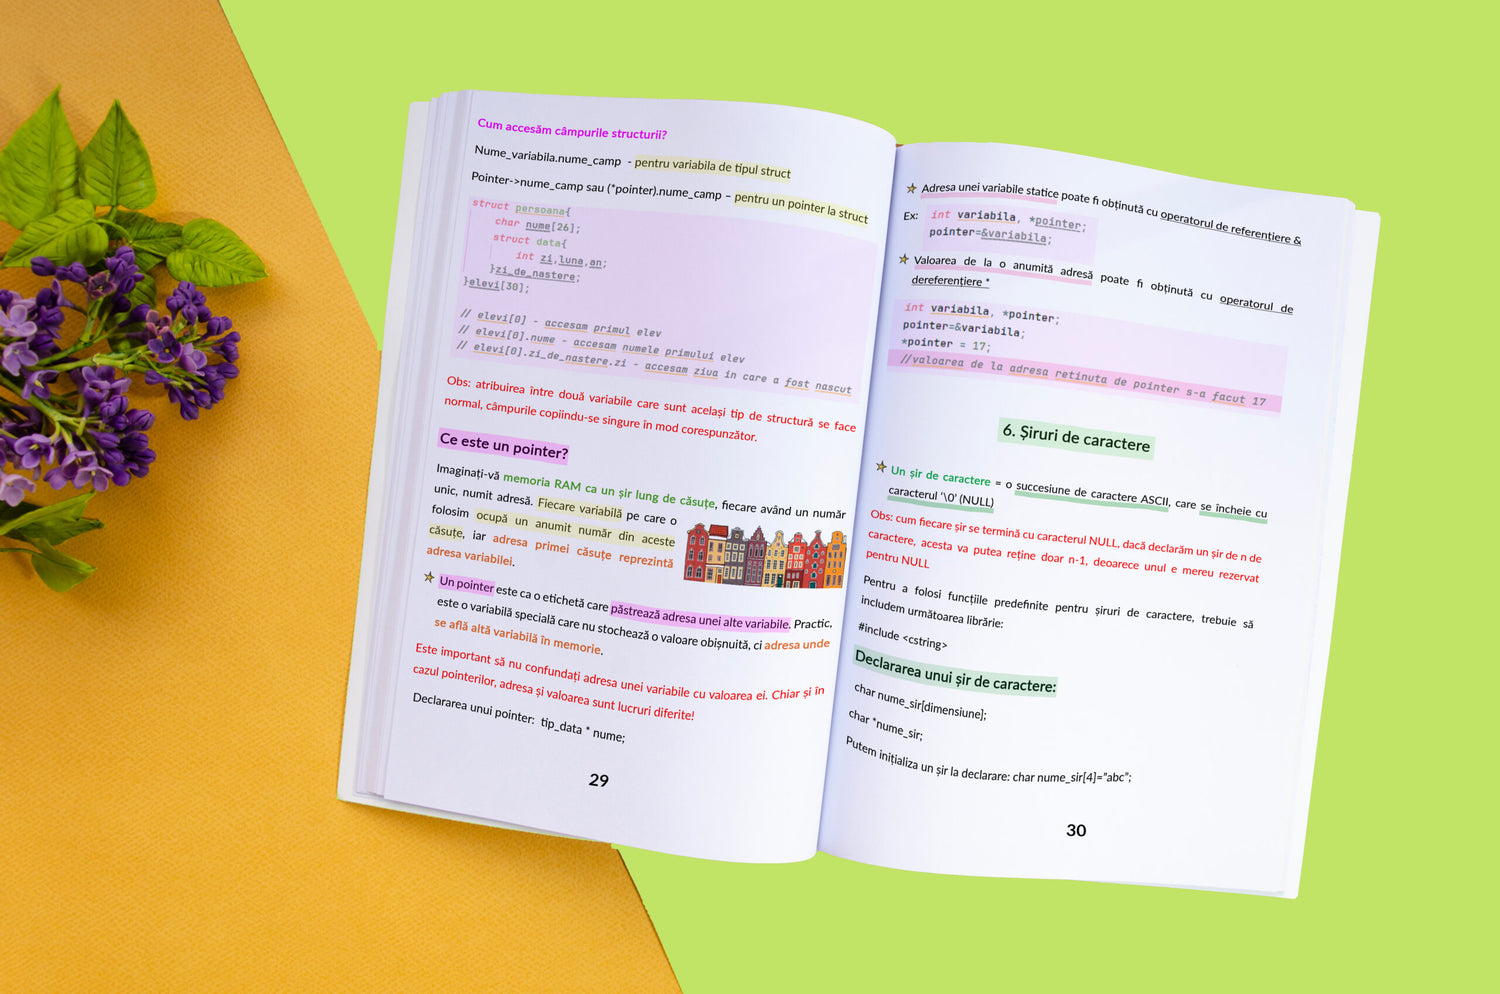 Cum accesăm câmpurile structurii?
Nume_variabila.nume_camp - pentru variabila de tipul struct
Pointer->nume_camp sau (*pointer).nume_camp – pentru un pointer la struct
struct persoana{
char nume[26];
struct data{
int zi,luna,an;
}zi_de_nastere;
}elevi[30];
// elevi[0] - accesam primul elev
// elevi[0].nume - accesam numele primului elev
// elevi[0].zi_de_nastere.zi - accesam ziua in care a fost nascut
Obs: atribuirea între două variabile care sunt același tip de structură se face
normal, câmpurile copiindu-se singure în mod corespunzător.
Ce este un pointer?
Imaginați-vă memoria RAM ca un șir lung de căsuțe, fiecare având un număr
unic, numit adresă. Fiecare variabilă pe care o
folosim ocupă un anumit număr din aceste
căsuțe, iar adresa primei căsuțe reprezintă
adresa variabilei.
Un pointer este ca o etichetă care păstrează adresa unei alte variabile. Practic,
este o variabilă specială care nu stochează o valoare obișnuită, ci adresa unde
se află altă variabilă în memorie.
Este important să nu confundați adresa unei variabile cu valoarea ei. Chiar și în
cazul pointerilor, adresa și valoarea sunt lucruri diferite!
Declararea unui pointer: tip_data * nume;
29
Adresa unei variabile statice poate fi obținută cu operatorul de referențiere &
Ex: int variabila, *pointer;
pointer=&variabila;
Valoarea de la o anumită adresă poate fi obținută cu operatorul de
dereferențiere *
int variabila, *pointer;
pointer=&variabila;
*pointer = 17;
//valoarea de la adresa retinuta de pointer s-a facut 17
6. Șiruri de caractere
Un șir de caractere = o succesiune de caractere ASCII, care se încheie cu
caracterul '\0' (NULL)
Obs: cum fiecare șir se termină cu caracterul NULL, dacă declarăm un șir de n de
caractere, acesta va putea reține doar n-1, deoarece unul e mereu rezervat
pentru NULL
Pentru a folosi funcțiile predefinite pentru șiruri de caractere, trebuie să
includem următoarea librărie:
#include <cstring>
Declararea unui șir de caractere:
char nume_sir[dimensiune];
char *nume_sir;
Putem inițializa un șir la declarare: char nume_sir[4]="abc";
30